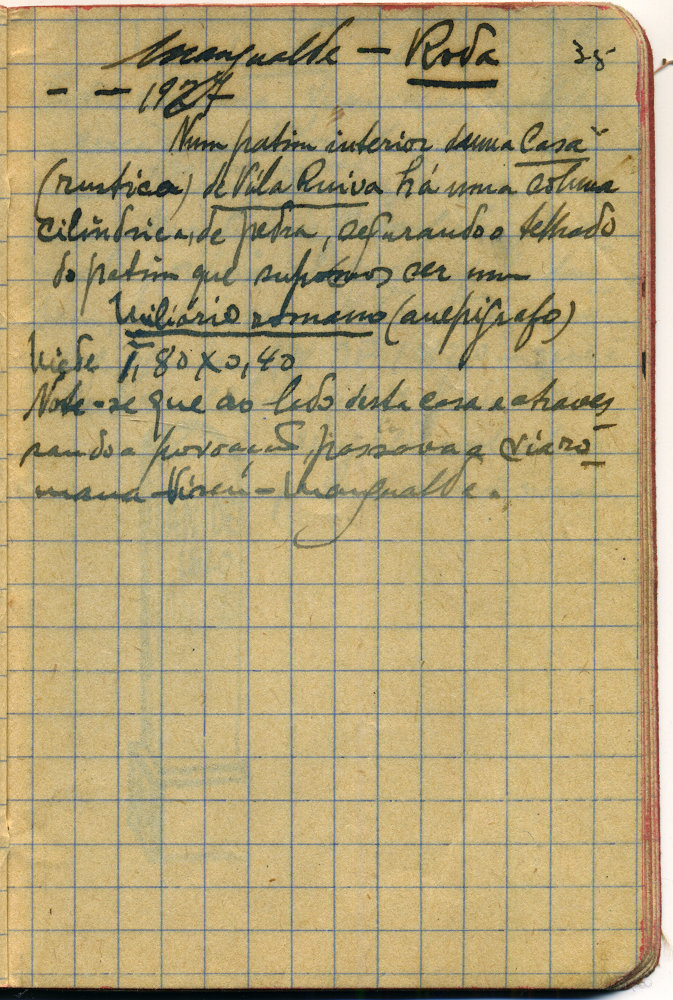 Mangualde — Roda 35
- — 1927
Num patim interior duma Casa
(rustica) de Vila Ruiva há uma coluna
cilíndrica, de pedra, segurando o telhado
do patim que supomos ser um
Miliário romano (anepígrafo)
Mede 1,80 X 0,40
Note-se que ao lado desta casa e atraves
sando a povoação, passava a via ro-
mana Viseu - Mangualde.